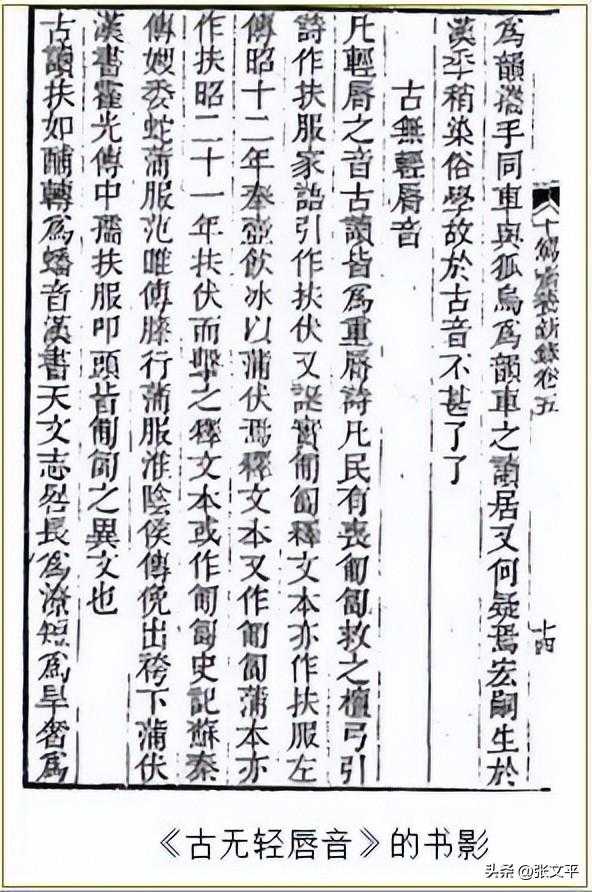 十駕齋養新錄卷五
十四
為韻攜手同車與狐烏為韻車之讀居又何疑焉宏嗣生於
漢季稍染俗學故於古音不甚了了
古無輕脣音
凡輕脣之音古讀皆為重脣詩凡民有喪匍匐救之檀弓引
詩作扶服家語引作扶伏又誕實匍匐釋文本亦作扶服左
傳昭十二年奉壺飲冰以蒲伏焉釋文本又作匍匐蒲本亦
作扶昭二十一年扶伏而擊之釋文本或作匍匐史記蘇秦
傳嫂委蛇蒲服范雎傳膝行蒲服淮陰侯傳俛出袴下蒲伏
漢書霍光傳中孺扶服叩頭皆匍匐之異文也
古讀扶如酺轉為蟠音漢書天文志晷長為潦短為旱奢為
《古无轻唇音》的书影
头条 @张文平